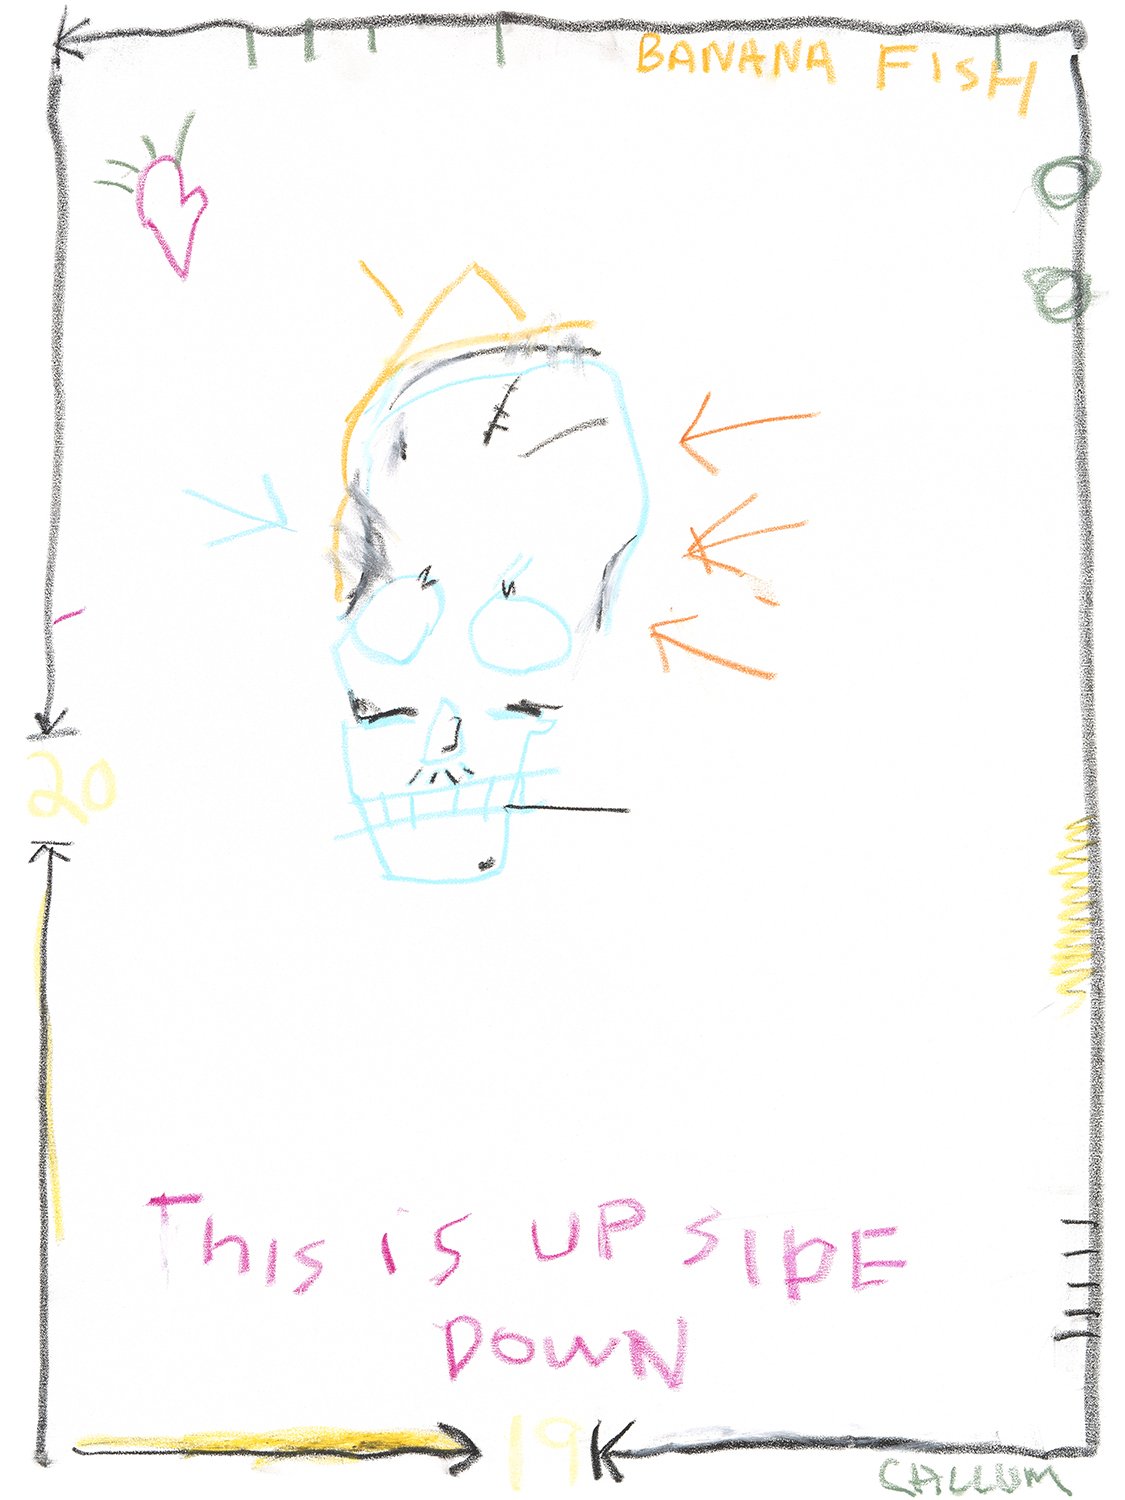 BANANA FISH
20
THis is UP SIDE
DOWN
19K
CALLUM